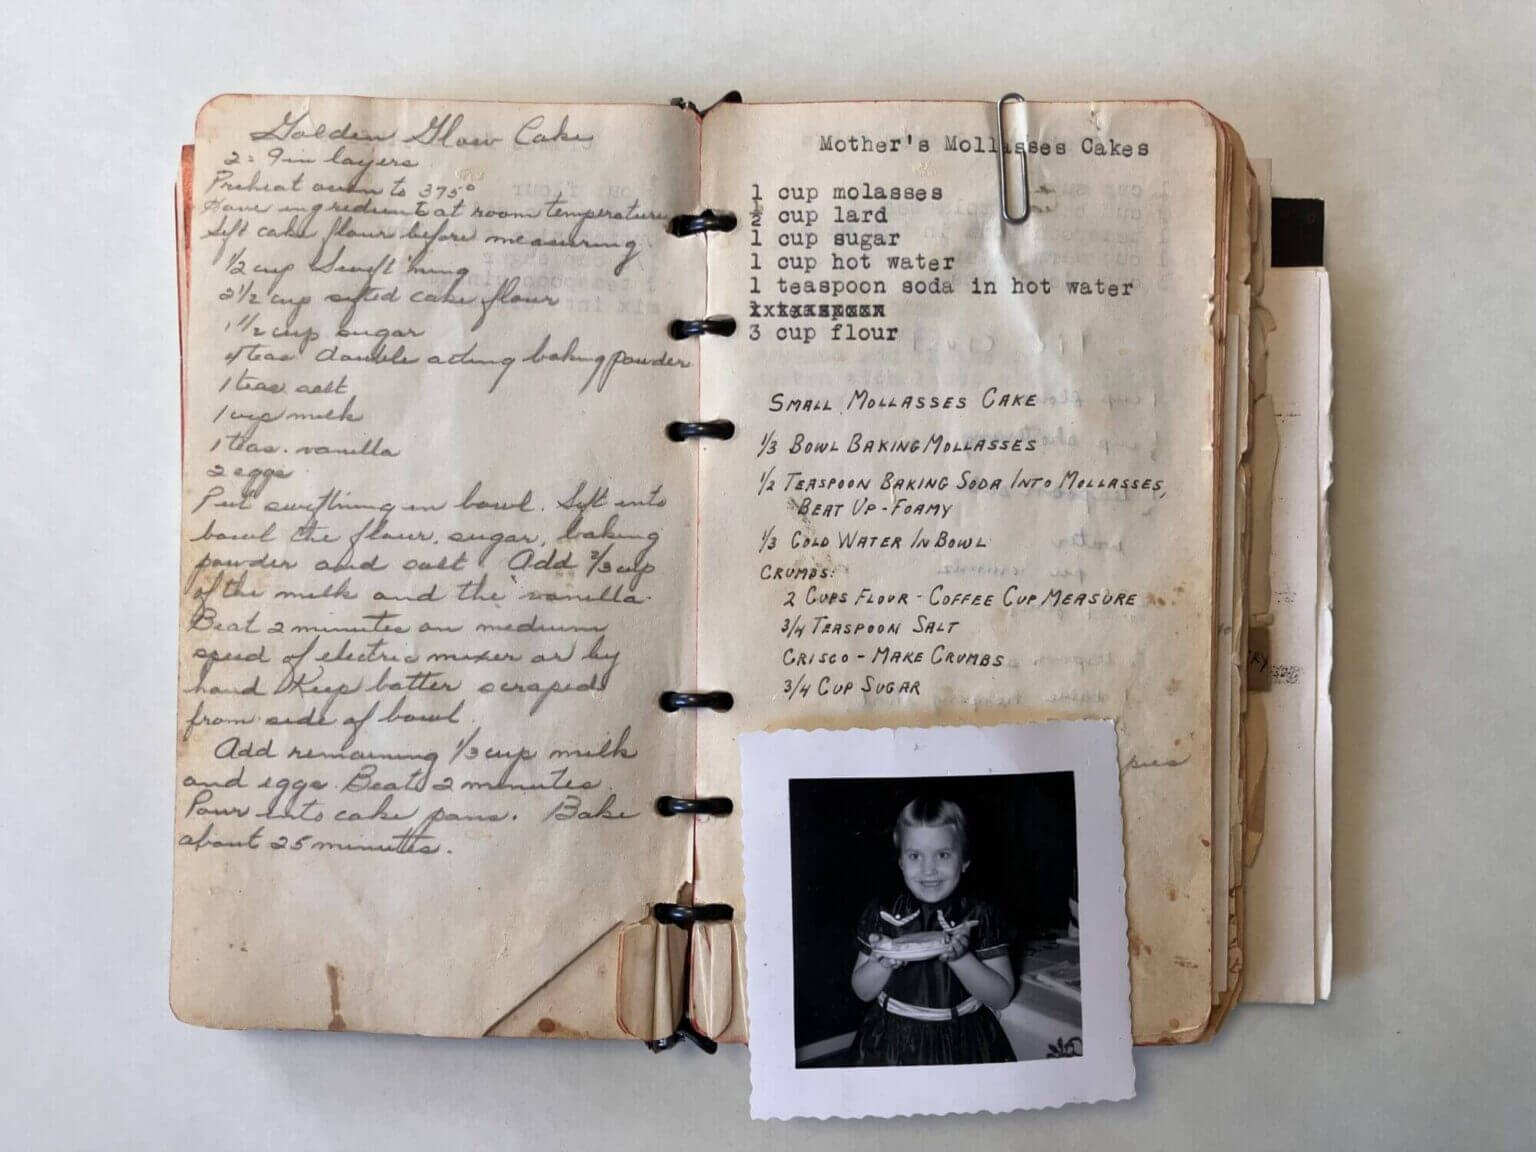 Golden Glow Cake
2 = 9 in layers
Preheat oven to 375°
Have ingredients at room temperature
Sift cake flour before measuring
1/2 cup Swift'ning
2 1/2 cup sifted cake flour
1 1/2 cup sugar
4 teas double acting baking powder
1 teas salt
1 cup milk
1 teas. vanilla
2 eggs
Put swiftning in bowl. Sift into
bowl the flour, sugar, baking
powder and salt. Add 2/3 cup
of the milk and the vanilla.
Beat 2 minutes on medium
speed of electric mixer or by
hand Keep batter scraped
from side of bowl.
Add remaining 1/3 cup milk
and eggs Beat 2 minutes.
Pour into cake pans. Bake
about 25 minutes.
Mother's Mollasses Cakes
1 cup molasses
½ cup lard
1 cup sugar
1 cup hot water
1 teaspoon soda in hot water
3 cup flour
SMALL MOLLASSES CAKE
1/3 BOWL BAKING MOLLASSES
1/2 TEASPOON BAKING SODA INTO MOLLASSES,
BEAT UP - FOAMY
1/3 COLD WATER IN BOWL
CRUMBS:
2 CUPS FLOUR - COFFEE CUP MEASURE
3/4 TEASPOON SALT
CRISCO - MAKE CRUMBS
3/4 CUP SUGAR
pies